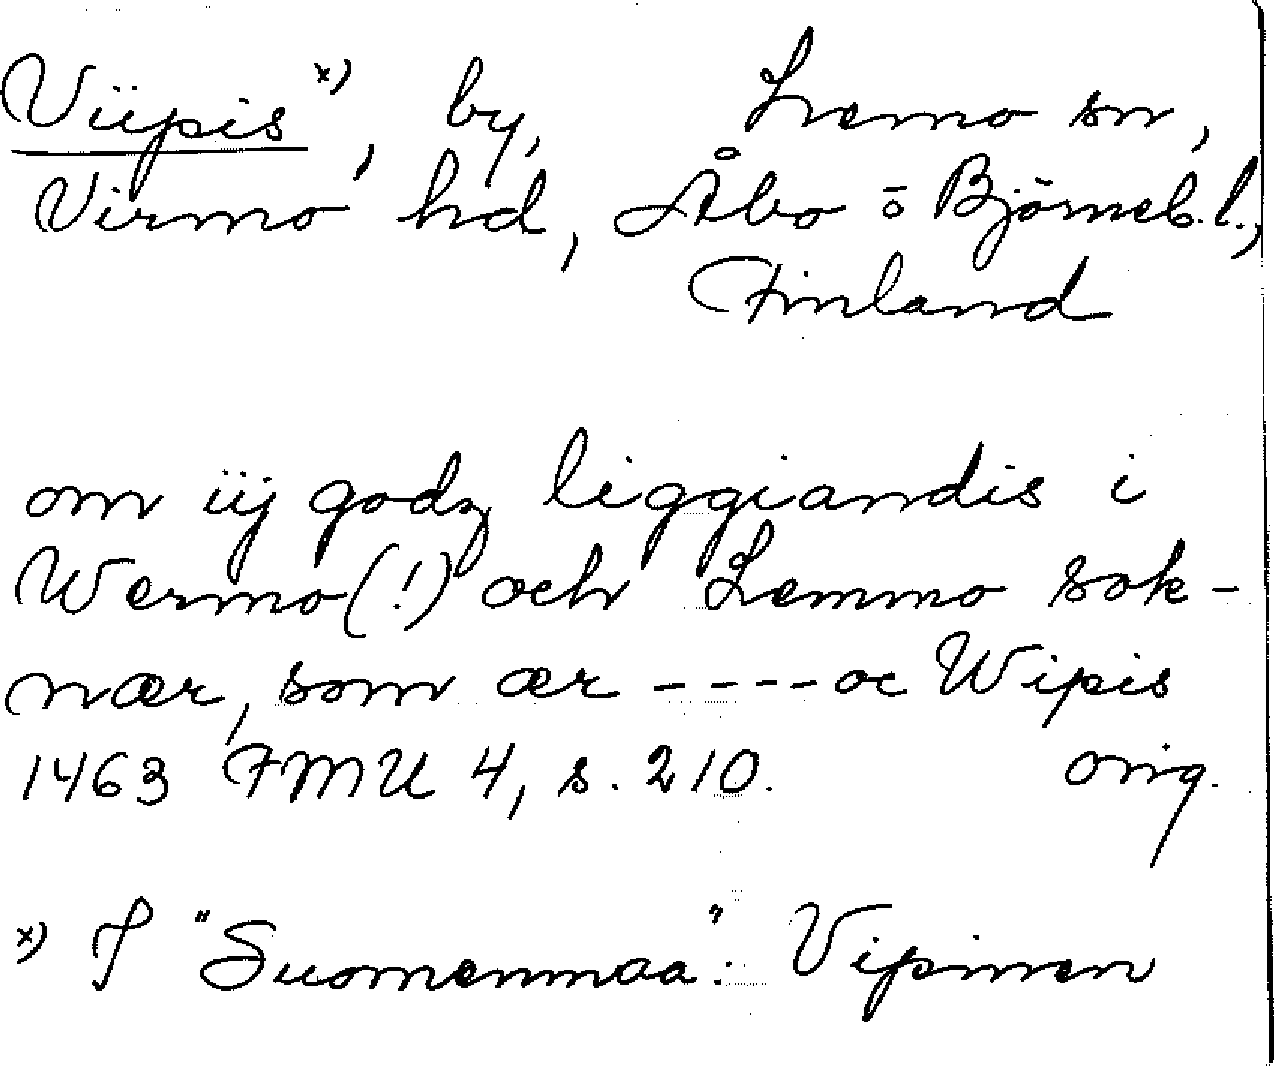 Viipis x), by, Lemo sn,
Virmo hd, Åbo o Björneb. l.,
Finland
om iij godz liggiandis i
Wermo(!) och Lemmo sok-
nær, som ær ---- oc Wipis
1463 FMU 4, s. 210. orig.
x) I "Suomenmaa": Vipinen